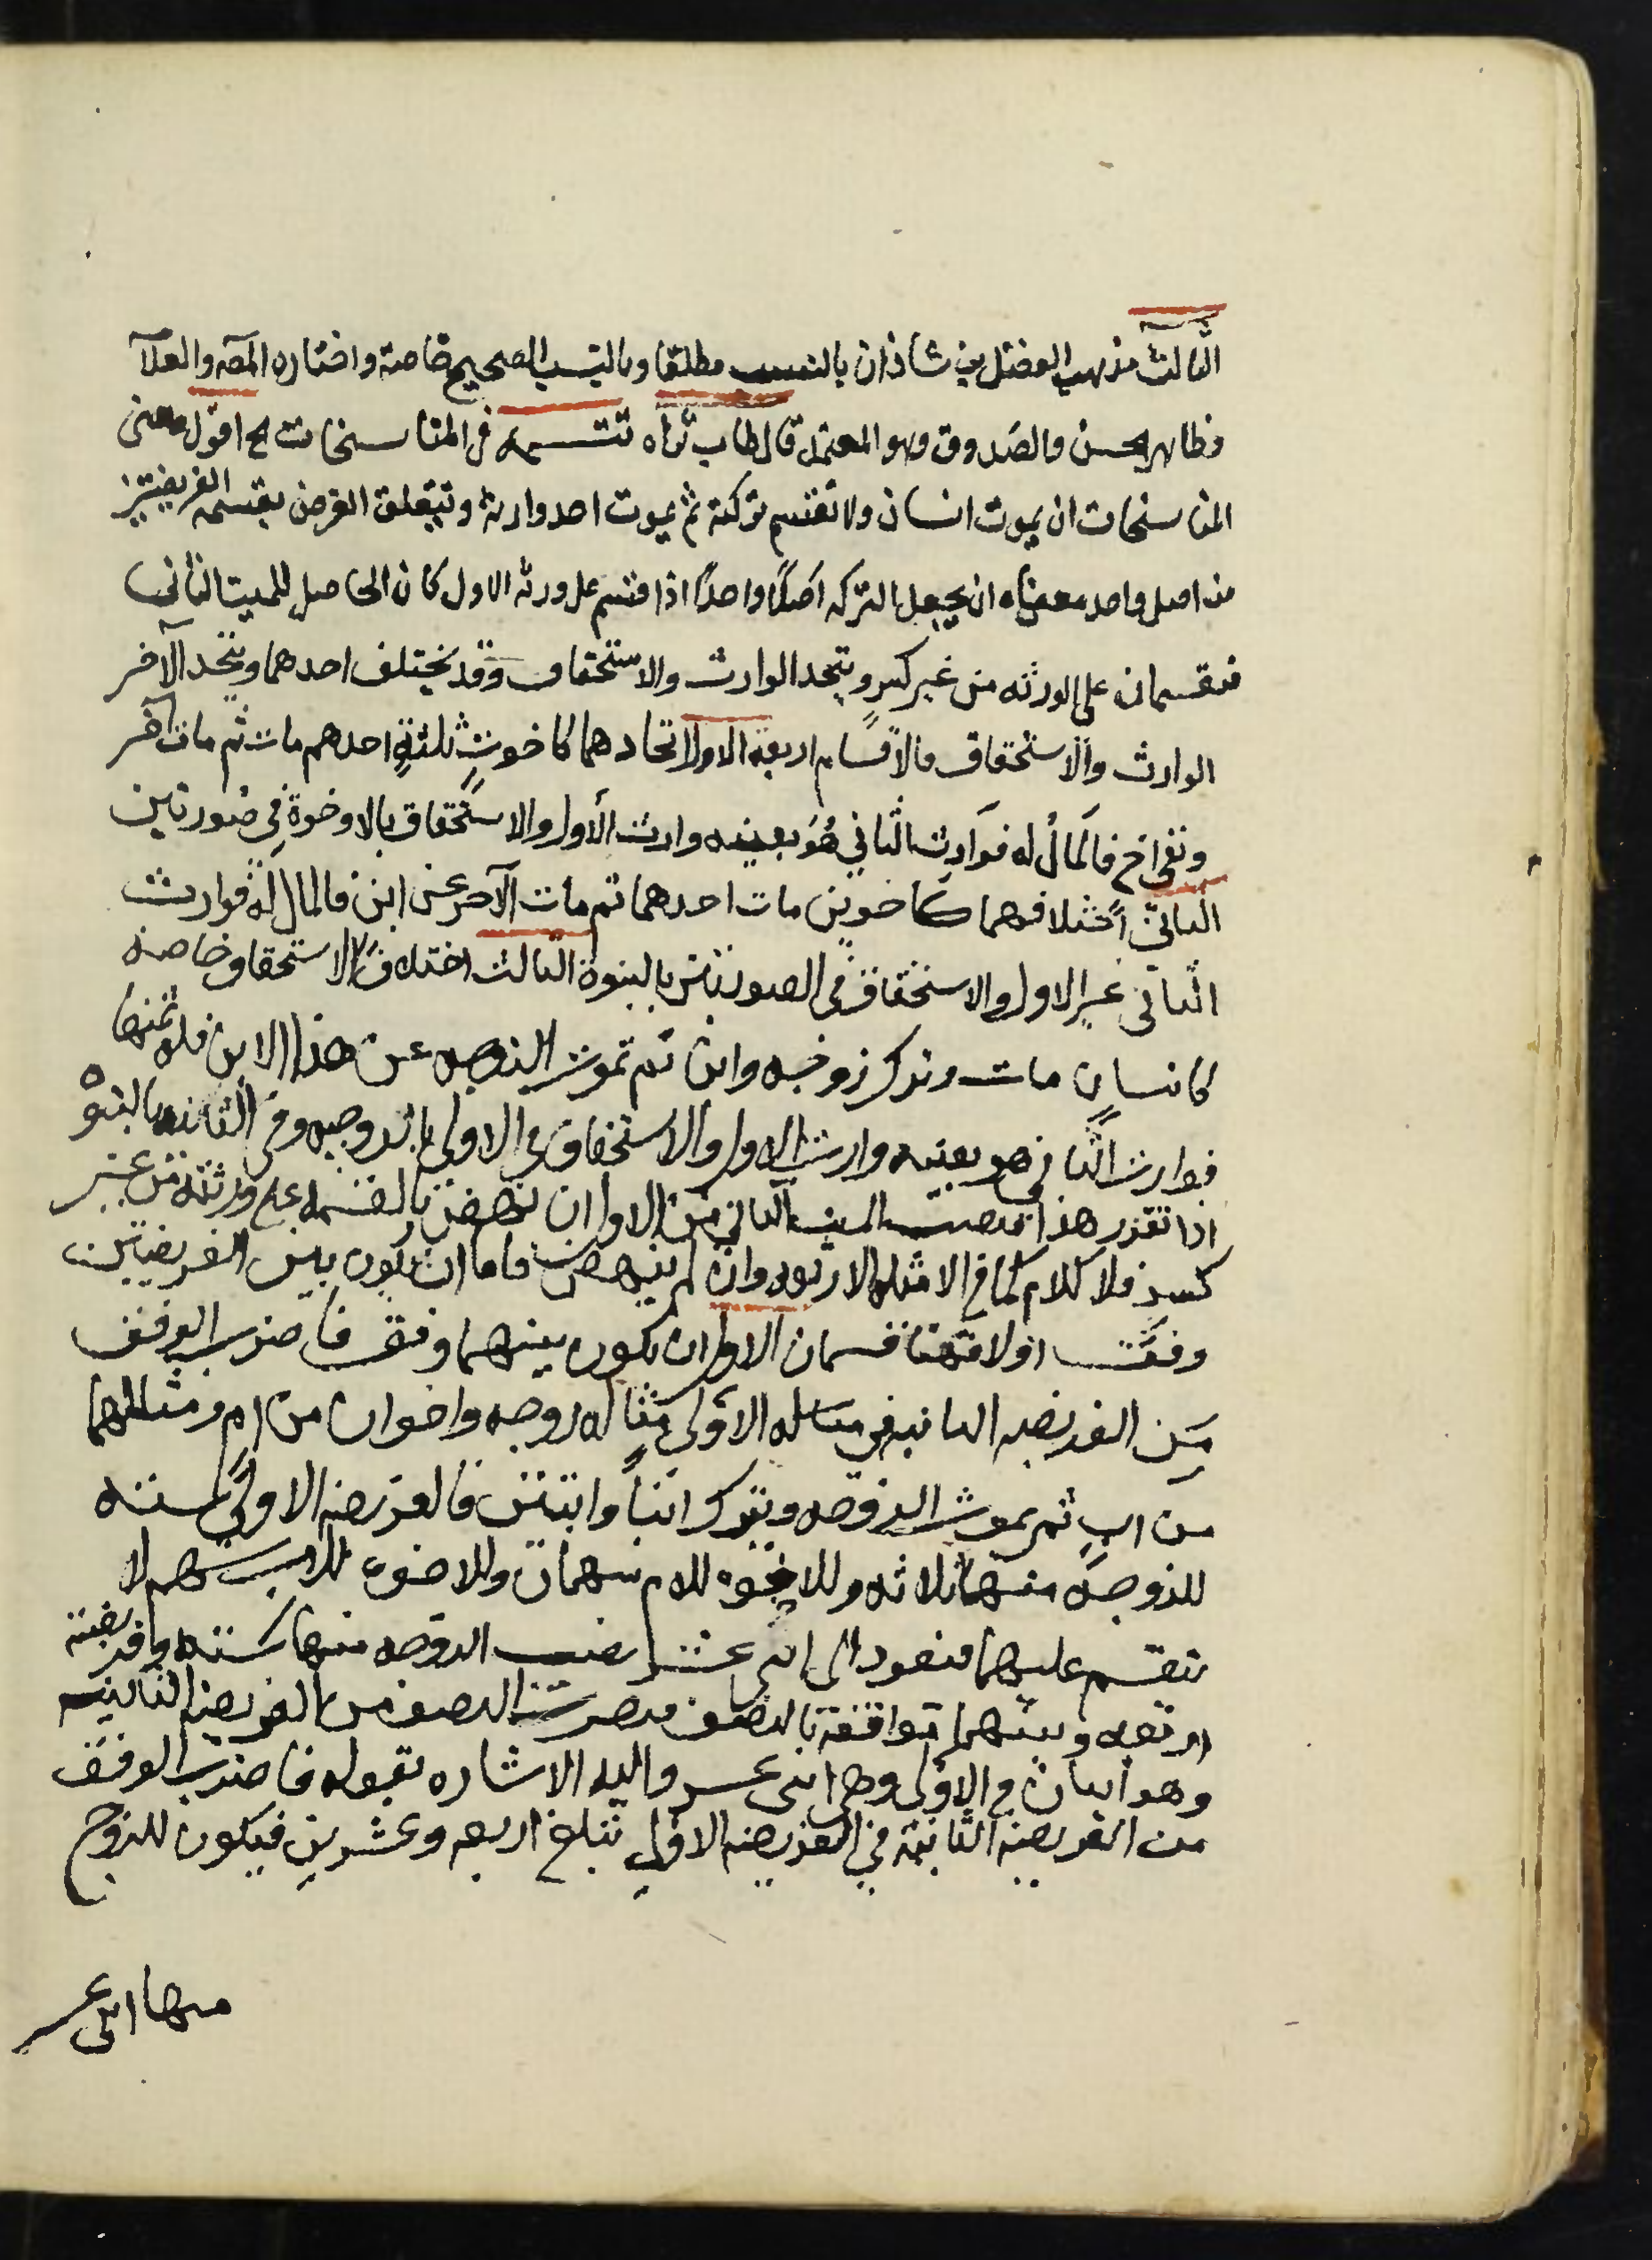 الثالث مذهب الفضل بن شاذان بالنسب مطلقا وبالسبب الصحيح خاصة واختاره المصه والعلا
وظاهر الحسن والصدوق وهو المعتمد قال طاب ثراه تتـــمه في المناسخات الخ اقول معنى
المناسخات ان يموت انسان ولا تقتسم تركته ثم يموت احد وارثه ويتعلق الغرض بقسمة الفريضتين
من اصل واحد معناه ان يجعل التركه اصلا واحدا اذا قسم على ورثه الاول كان الحاصل للميت الثاني
منقسما على الورثه من غير كسر ويتحد الوارث والاستحقاق وقد يختلف احدهما ويتحد الآخر
الوارث والاستحقاق فالاقسام اربعة الاول اتحادهما كاخوت ثلثة احدهم مات ثم مات آخر
وبقى اخ فالمال له فوارث الثاني هو بعينه وارث الأول والاستحقاق بالاخوة في صورتين
الثاني اختلافهما كاخوين مات احدهما ثم مات الآخر عن ابن فالمال له فوارث
الثاني غير الاول والاستحقاق في الصورتين بالبنوة الثالث اختلاف الاستحقاق خاصه
كانسان مات وترك زوجه وابن ثم تموت الزوجه عن هذا الابن فله ثمنها
فوارث الثاني هو بعينه وارث الاول والاستحقاق في الاولى بالزوجيه وفي الثانيه بالبنوه
اذا تقرر هذا فنصيب الميت الثاني من الاول ان نهض بالقسمه على ورثته من غير
كسر فلا كلام كما في الامثله الاربعه وان لم ينهض فاما ان يكون بين الفريضتين
وفق اولا فهنا قسمان الاول ان يكون بينهما وفق فاضرب الوفق
من الفريضه الثانيه في مسئله الاولى مثاله زوجه واخوان من ام ومثلهما
من اب ثم يموت الزوجه ويترك ابنا وابنتين فالفريضه الاولى سته
للزوجه منها ثلاثه وللاخوه للام سهمان وللاخوه للاب سهم لا
ينقسم عليهما فتعود الى اثنى عشر نصيب الزوجه منها سته وفريضته
اربعه وبينهما توافقة بالنصف فضرب النصف من الفريضه الثانيه
وهو اثنان في الاولى وهي اثنى عشر واليه الاشاره بقوله فاضرب الوفق
من الفريضة الثانية في الفريضه الاولى تبلغ اربعه وعشرين فيكون للزوج
منها اثنى عشر